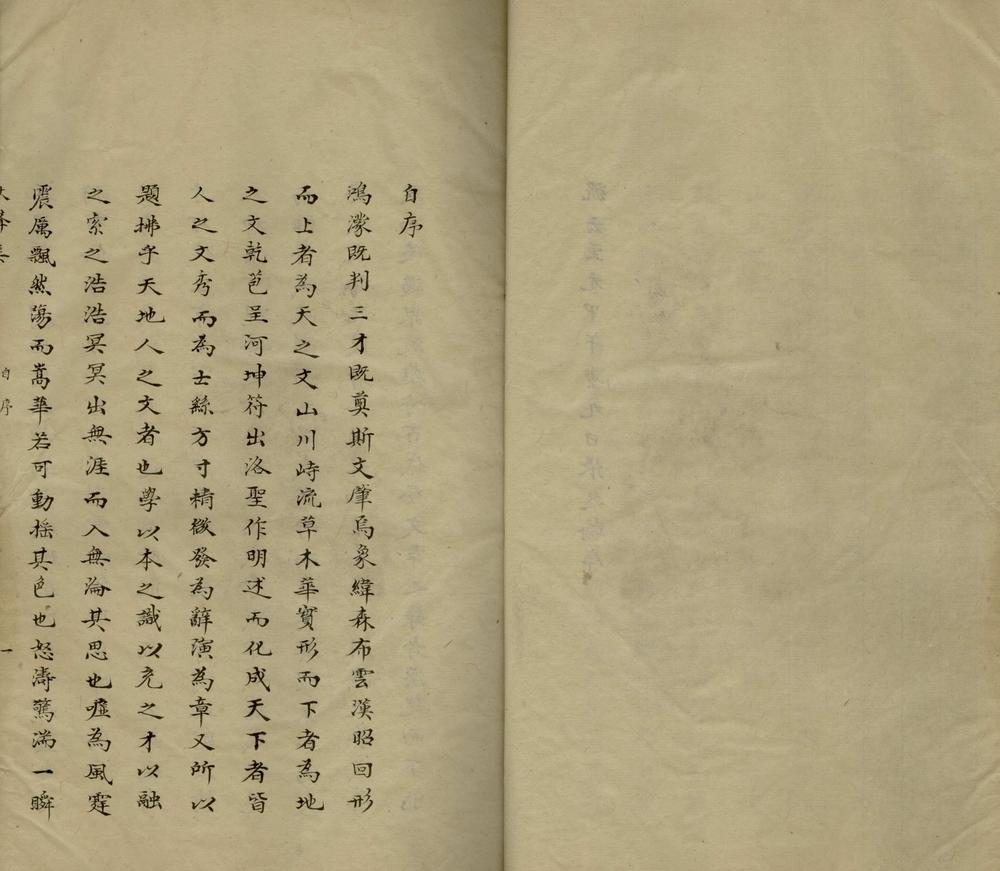 自序
鴻濛既判三才既奠斯文肇焉象緯森布雲漢昭回形
而上者為天之文山川峙流草木華實形而下者為地
之文乾苞呈河坤符出洛聖作明述而化成天下者皆
人之文秀而為士絲方寸精微發為辭演為章又所以
題拂乎天地人之文者也學以本之識以充之才以融
之索之浩浩冥冥出無涯而入無淪其思也噓為風霆
震厲飄然蕩而嵩華若可動搖其色也怒濤驚湍一瞬
自序
一